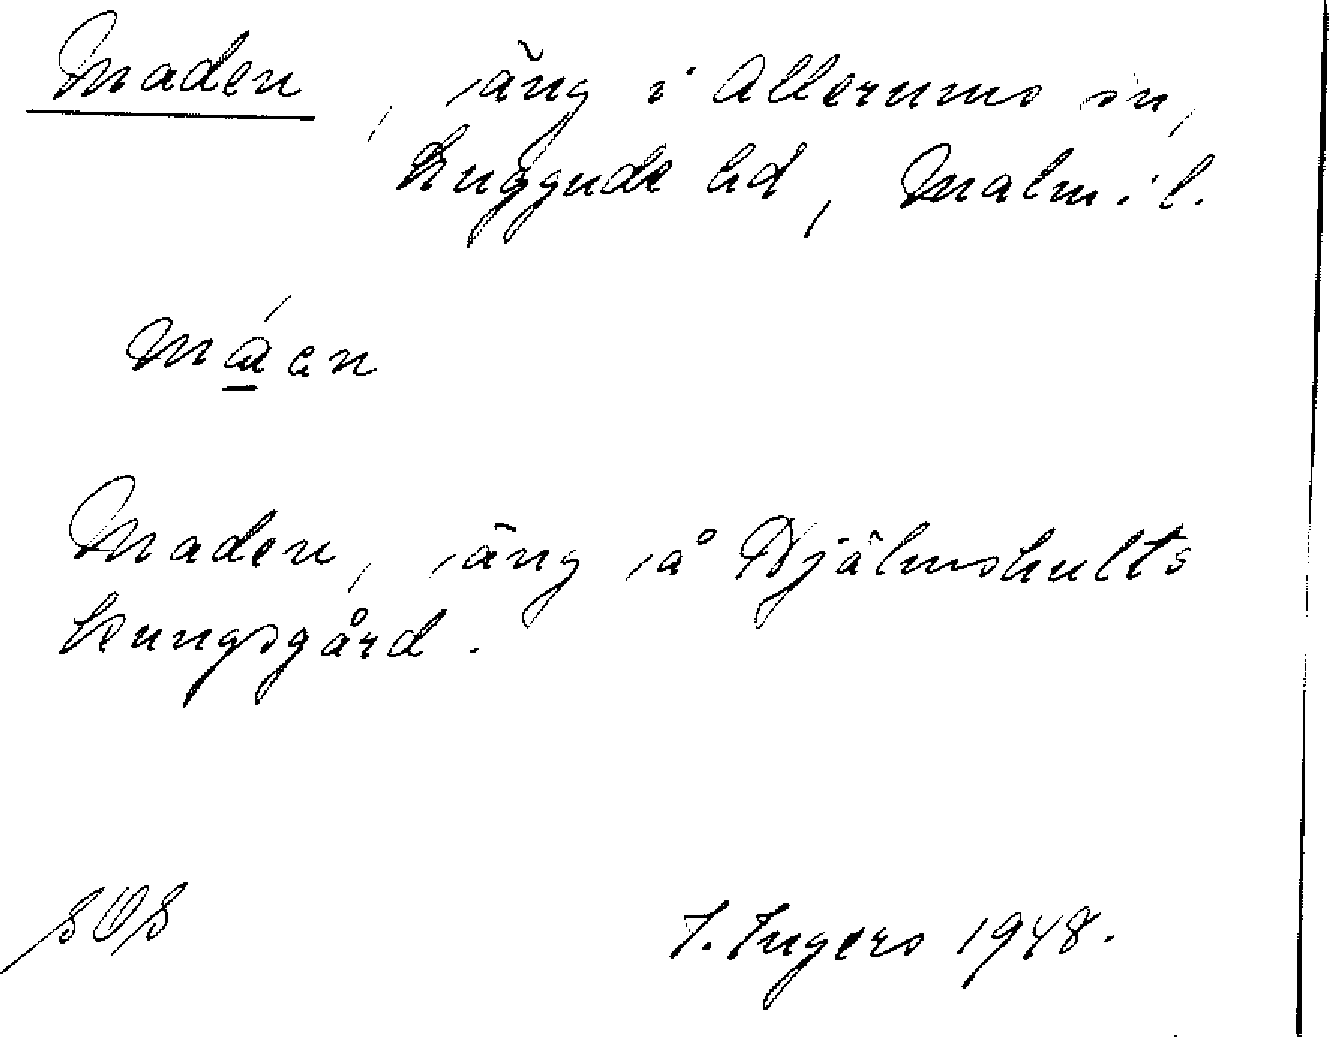 Maden, äng i Allerums sn,
Luggude hd, Malm. l.
máen
Maden, äng å Hjälmshults
kungsgård.
SOS I. Ingers 1948.